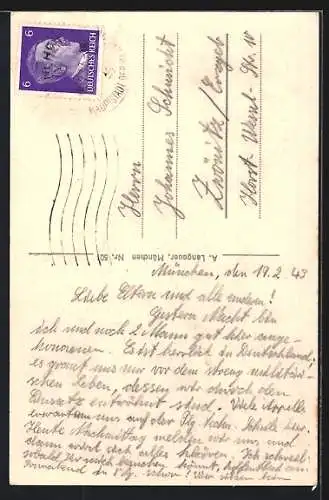 6 6
DEUTSCHES REICH
HAUPTSTADT DER
Herrn
Johannes Schmidt
Zwönitz / Erzgeb
Horst Wessel-Str. 10
A. Lengauer, München Nr. 50
München, den 19.2.43
Liebe Eltern und alle andern!
Gestern Nacht bin
ich und noch 2 Mann gut hier ange-
kommen. Es ist herrlich in Deutschland,
es graut uns nur vor dem streng militäri-
schen Leben, dessen wir durch den
Einsatz entwöhnt sind. Viele Appelle
erwarten uns auf der
Heute Nachmittag melden wir uns und
dann wird sich alles klären. Ich schreib
sobald Ihr mich besuchen könnt, hoffentlich am
Sonnabend schon!